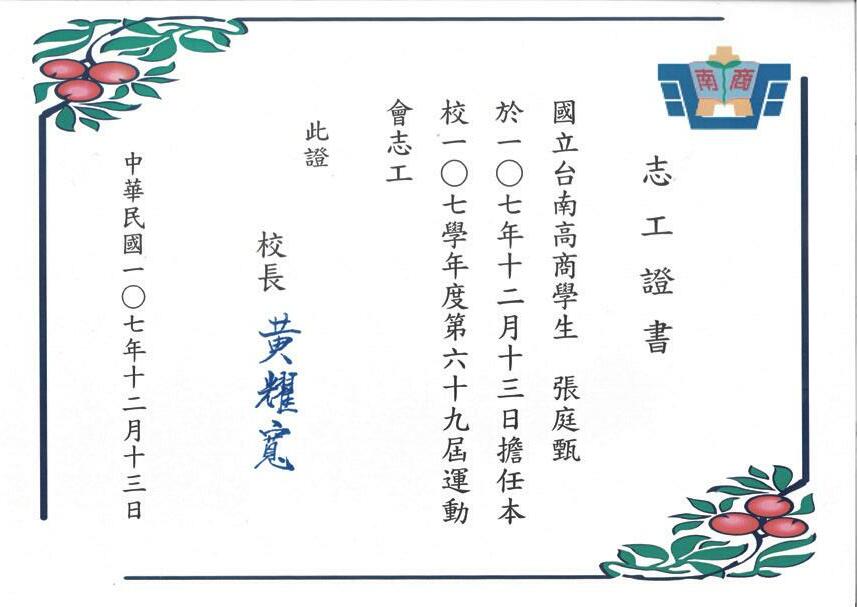 南商
志工證書
國立台南高商學生 張庭甄
於一〇七年十二月十三日擔任本
校一〇七學年度第六十九屆運動
會志工
此證
校長 黃耀寬
中華民國一〇七年十二月十三日